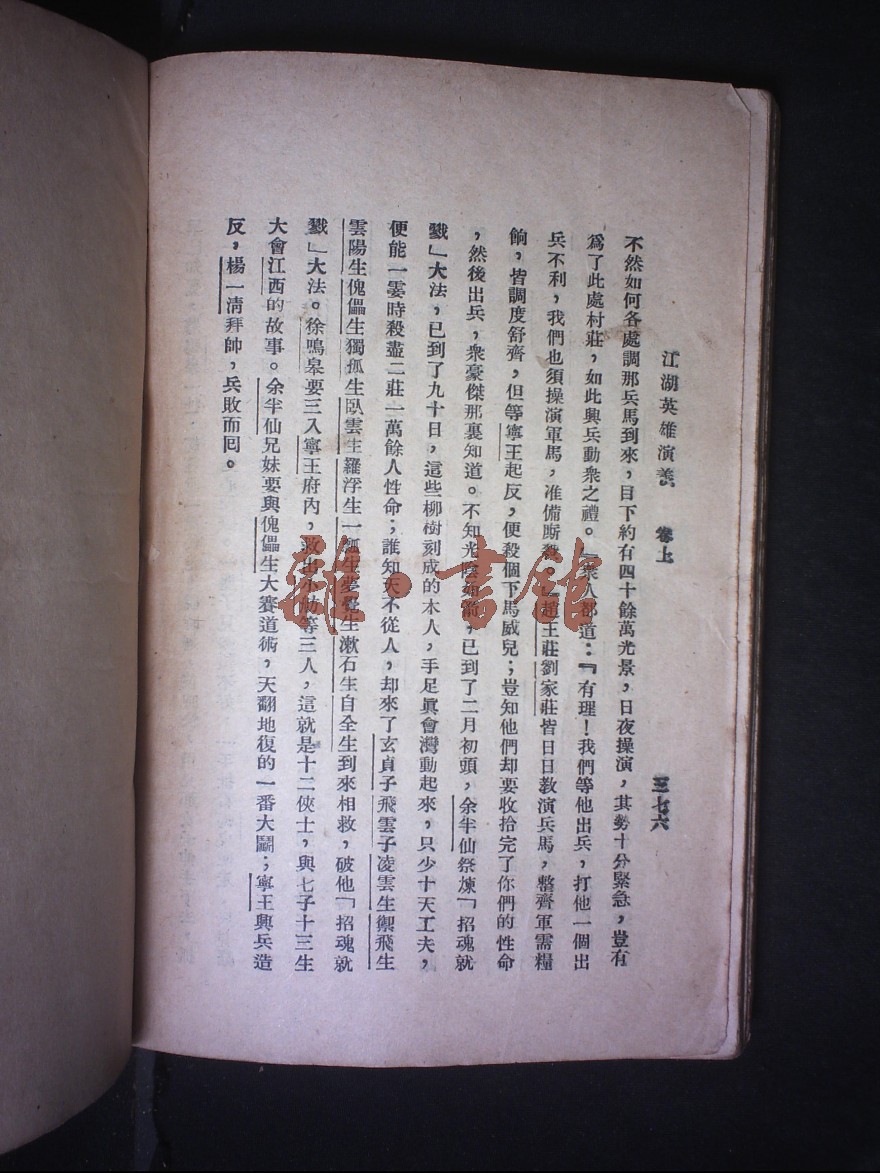 江湖英雄演義 卷上 三七六
不然如何各處調那兵馬到來，目下約有四十餘萬光景，日夜操演，其勢十分緊急，豈有
爲了此處村莊，如此興兵動衆之禮。』衆人都道：『有理！我們等他出兵，打他一個出
兵不利，我們也須操演軍馬，准備廝殺。』趙王莊劉家莊皆日日敎演兵馬，整齊軍需糧
餉，皆調度舒齊，但等寧王起反，便殺個下馬威兒；豈知他們却要收拾完了你們的性命
，然後出兵，衆豪傑那裏知道。不知光陰如箭，已到了二月初頭，余半仙祭煉「招魂就
戮」大法，已到了九十日，這些柳樹刻成的木人，手足眞會灣動起來，只少十天工夫，
便能一霎時殺盡二莊一萬餘人性命；誰知天不從人，却來了玄貞子飛雲子凌雲生御飛生
雲陽生傀儡生獨孤生臥雲生羅浮生一瓢生夢覺生漱石生自全生到來相救，破他「招魂就
戮」大法。徐鳴皋要三入寧王府內，救出小舫等三人，這就是十二俠士，與七子十三生
大會江西的故事。余半仙兄妹要與傀儡生大賽道術，天翻地復的一番大鬭；寧王興兵造
反，楊一淸拜帥，兵敗而囘。
雜·書館